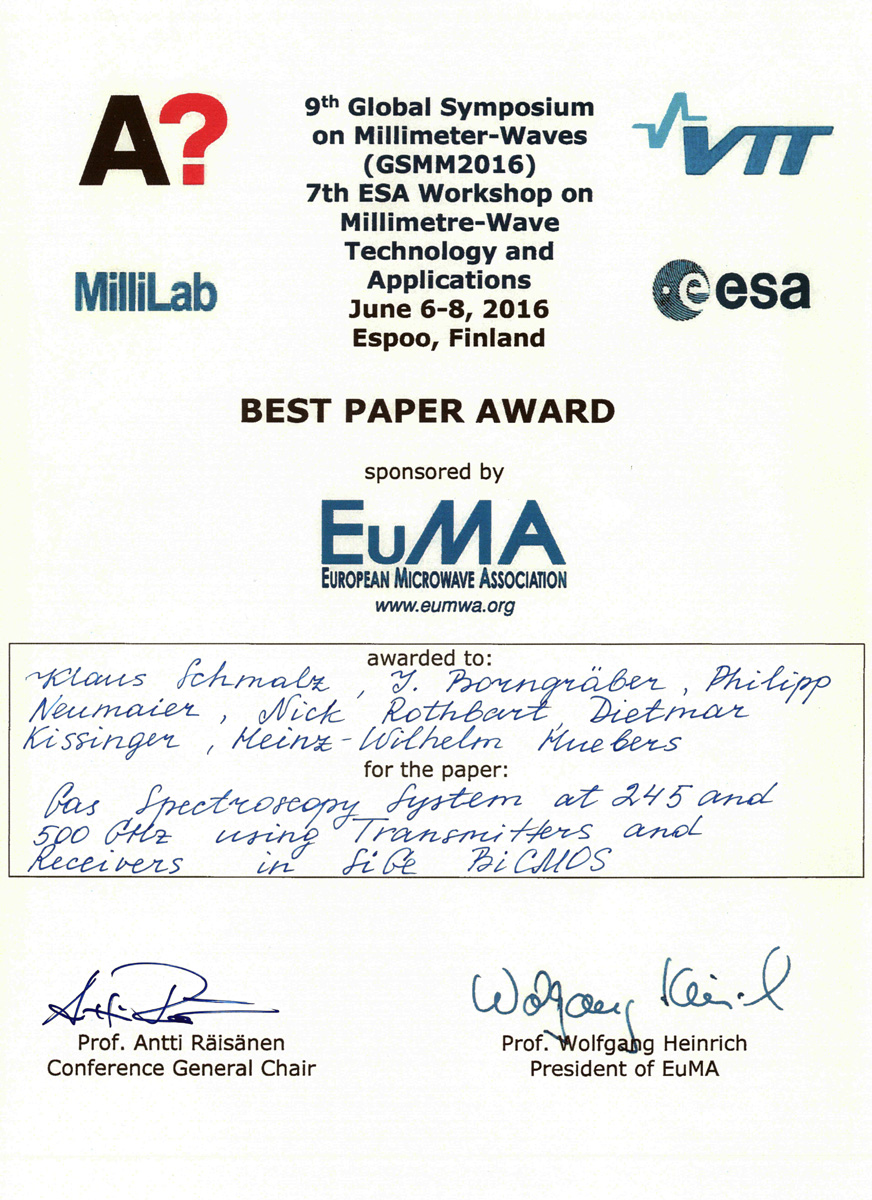 A?
9th Global Symposium
on Millimeter-Waves
(GSMM2016)
7th ESA Workshop on
Millimetre-Wave
Technology and
Applications
June 6-8, 2016
Espoo, Finland
VTT
MilliLab
esa
BEST PAPER AWARD
sponsored by
EuMA
EUROPEAN MICROWAVE ASSOCIATION
www.eumwa.org
awarded to:
Klaus Schmalz, J. Borngräber, Philipp
Neumaier, Nick Rothbart, Dietmar
Kissinger, Heinz-Wilhelm Huebers
for the paper:
Gas Spectroscopy System at 245 and
500 GHz using Transmitters and
Receivers in SiGe BiCMOS
Wolfgang Heinrich
Prof. Antti Räisänen
Conference General Chair
Prof. Wolfgang Heinrich
President of EuMA